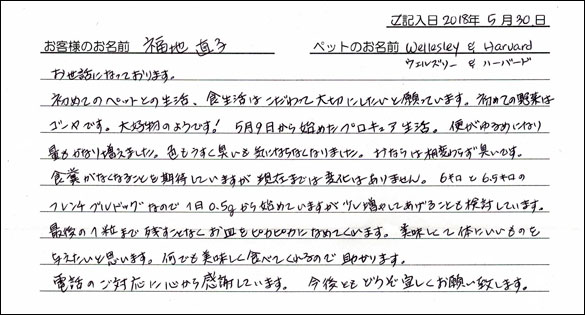 ご記入日 2018年 5月 30日
お客様のお名前 福地 直子 ペットのお名前 Wellesley & Harvard
ウェルズリー & ハーバード
お世話になっております。
初めてのペットとの生活、食生活はこだわって大切にしたいと願っています。初めての野菜は
ゴーヤです。大好物のようです! 5月9日から始めたプロキュア生活。便がゆるめになり
量もかなり増えました。色もうすく臭いも気にならなくなりました。おならは相変わらず臭いです。
食糞がなくなることを期待していますが現在までは変化はありません。6キロと6.5キロの
フレンチブルドッグなので1日0.5gから始めていますが少し増やしてあげることも検討しています。
最後の1粒まで残すことなくお皿をピカピカになめてくれます。美味しくて体にいいものを
与えたいと思います。何でも美味しく食べてくれるので助かります。
電話のご対応に心から感謝しています。 今後ともどうぞ宜しくお願い致します。